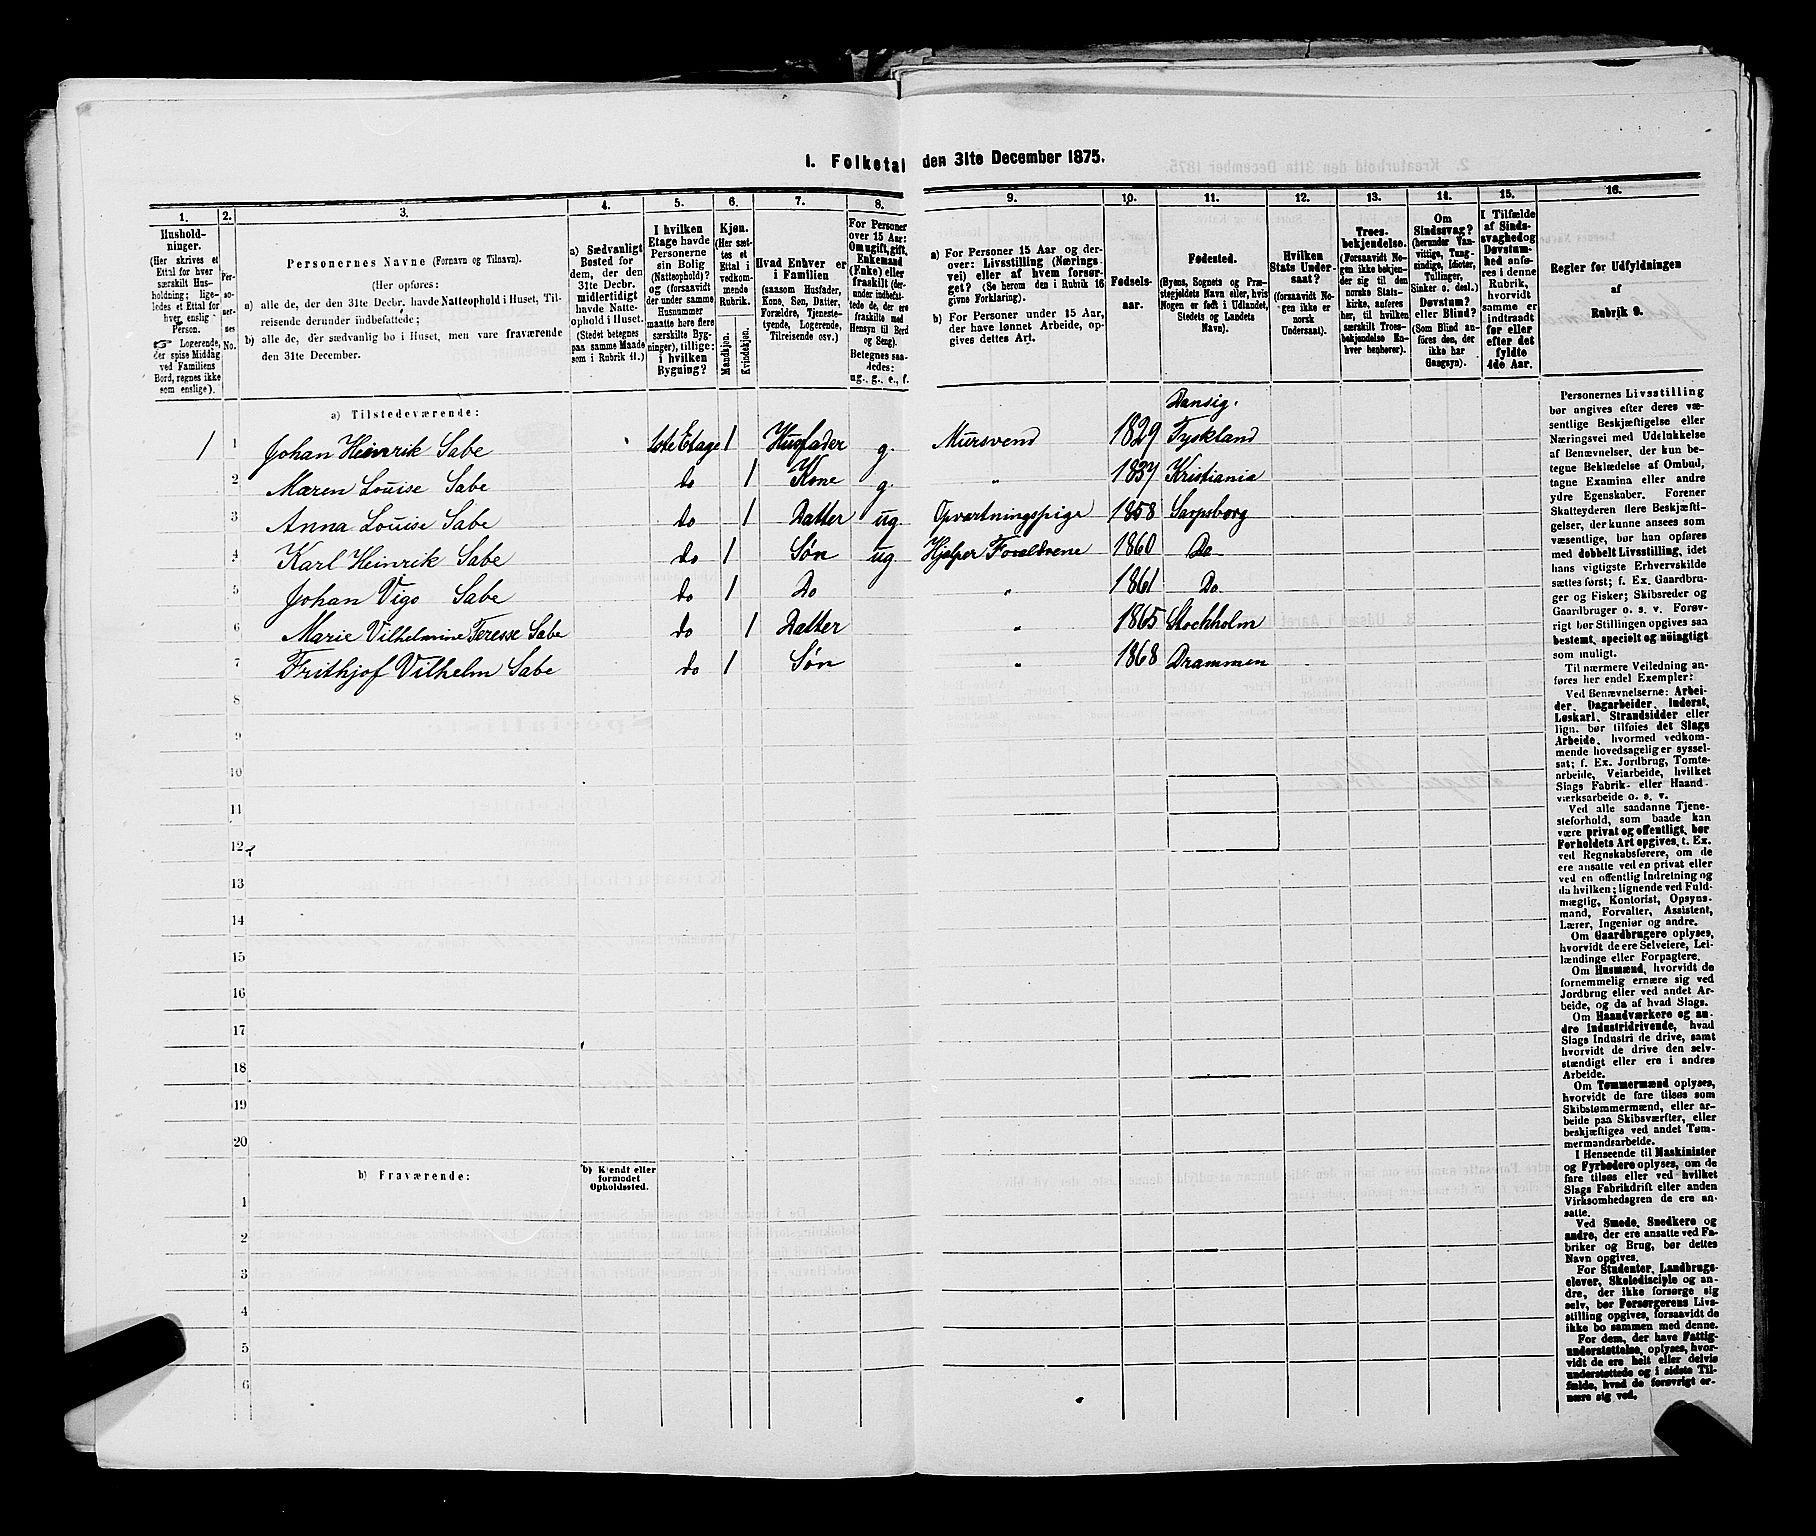 1. Folketal den 31te December 1875.
1.
2.
3.
4.
5.
6.
7.
8.
9.
10.
11.
12.
13.
14.
15.
16.
Hushold-
ninger.
(Her skrives et
Ettal for hver
særskilt Hus-
holdning; lige-
ledes et Ettal for
hver enslig
Person.
☞ Logerende,
der spise Middag
ved Familiens
Bord, regnes ikke
som enslige).
Per-
so-
ner-
nes
No.
Personernes Navne (Fornavn og Tilnavn).
(Her opføres:
a) alle de, der den 31te Decbr. havde Natteophold i Huset, Til-
reisende derunder indbefattede;
b) alle de, der sædvanlig bo i Huset, men vare fraværende
den 31te December.
a) Sædvanligt
Bosted for
dem, der den
31te Decbr.
midlertidigt
havde Natte-
ophold i Huset.
(Stedet betegnes
paa samme Maade
som i Rubrik 11.)
I hvilken
Etage havde
Personerne
sin Bolig
(Natteophold)?
og (forsaavidt
der under samme
Husnummer
maatte høre flere
særskilte Byg-
ninger), tillige:
i hvilken
Bygning?
Kjøn.
(Her sæt-
tes et
Ettal i
vedkom-
mende
Rubrik.
Mandkjøn.
Kvindekjøn.
Hvad Enhver er
i Familien
(saasom Husfader,
Kone, Søn, Datter,
Forældre, Tjeneste-
tyende, Logerende,
Tilreisende osv.)
For Personer
over 15 Aar:
Om ugift, gift,
Enkemand
(Enke) eller
fraskilt (der-
under indbefat-
tede de, der ere
fraskilte med
Hensyn til Bord
og Seng).
Betegnes saa-
ledes:
ug., g., e., f.
a) For Personer 15 Aar og der-
over: Livsstilling (Nærings-
vei) eller af hvem forsør-
get? (Se herom den i Rubrik 16
givne Forklaring).
b) For Personer under 15 Aar,
der have lønnet Arbeide, op-
gives dettes Art.
Fødsels-
aar.
Fødested.
(Byens, Sognets og Præ-
stegjeldets Navn eller, hvis
Nogen er født i Udlandet,
Stedets og Landets
Navn).
Hvilken
Stats Under-
saat?
(forsaavidt No-
gen ikke er
norsk
Undersaat).
Troes-
bekjendelse.
(Forsaavidt No-
gen ikke bekjen-
der sig til den
norske Stats-
kirke, anføres
her, til hvilken
særskilt Troes-
bekjendelse En-
hver henhører).
Om
Sindssvag?
(herunder Van-
vittige, Tung-
sindige, Idioter,
Tullinger,
Sinker o. desl.)
Døvstum?
eller Blind?
(Som Blind an-
føres den, der
ikke har
Gangsyn).
I Tilfælde
af Sinds-
svaghed og
Døvstum-
hed anfø-
res i denne
Rubrik,
hvorvidt
samme er
indtraadt
før eller
efter det
fyldte
4de Aar.
Regler for Udfyldningen
af
Rubrik 9.
a) Tilstedeværende:
1 1 Johan Heinrik Sabe 1ste Etage 1 Husfader g. Mursvend 1829 Dansig. Tyskland
2 Maren Louise Sabe do 1 Kone g. " 1837 Kristiania
3 Anna Louise Sabe do 1 Datter ug. Opvartningspige 1858 Sarpsborg
4 Karl Heinrik Sabe do 1 Søn ug Hjelper Forældrene 1860 Do
5 Johan Vigo Sabe do 1 Do " 1861 Do
6 Marie Vilhelmine Teresse Sabe do 1 Datter " 1865 Stockholm
7 Frithjof Vilhelm Sabe do 1 Søn " 1868 Drammen
8
9
10
11
12
13
14
15
16
17
18
19
20
b) Fraværende:
b) Kjendt eller
formodet
Opholdssted.
1
2
3
4
5
6
Personernes Livsstilling
bør angives efter deres væ-
sentlige Beskjæftigelse eller
Næringsvei med Udelukkelse
af Benævnelser, der kun be-
tegne Beklædelse af Ombud,
tagne Examina eller andre
ydre Egenskaber. Forener
Skatteyderen flere Beskjæfti-
gelser, der kunne ansees som
væsentlige, bør han opføres
med dobbelt Livsstilling, idet
hans vigtigste Erhvervskilde
sættes først; f. Ex. Gaardbru-
ger og Fisker; Skibsreder og
Gaardbruger o. s. v. Forøv-
rigt bør Stillingen opgives saa
bestemt, specielt og nøiagtigt
som muligt.
Til nærmere Veiledning an-
føres her endel Exempler:
Ved Benævnelserne: Arbei-
der, Dagarbeider, Inderst,
Løskarl, Strandsidder eller
lign. bør tilføies det Slags
Arbeide, hvormed vedkom-
mende hovedsagelig er syssel-
sat; f. Ex. Jordbrug, Tomte-
arbeide, Veiarbeide, hvilket
Slags Fabrik- eller Haand-
værksarbeide o. s. v.
Ved alle saadanne Tjene-
steforhold, som baade kan
være privat og offentligt, bør
Forholdets Art opgives, t. Ex.
ved Regnskabsførere, om de
ere ansatte ved en privat eller
ved en offentlig Indretning og
da hvilken; lignende ved Fuld-
mægtig, Kontorist, Opsyns-
mand, Forvalter, Assistent,
Lærer, Ingeniør og andre.
Om Gaardbrugere oplyses,
hvorvidt de ere Selveiere, Lei-
lændinge eller Forpagtere.
Om Husmænd, hvorvidt de
fornemmelig ernære sig ved
Jordbrug eller ved andet Ar-
beide, og da af hvad Slags.
Om Haandværkere og an-
dre Industridrivende, hvad
Slags Industri de drive, samt
hvorvidt de drive den selv-
stændigt eller ere i andres
Arbeide.
Om Tømmermænd oplyses,
hvorvidt de fare tilsøs som
Skibstømmermænd, eller ar-
beide paa Skibsværfter, eller
beskjæftiges ved andet Tøm-
mermandsarbeide.
I Henseende til Maskinister
og Fyrbødere oplyses, om de
fare tilsøs eller ved hvilket
Slags Fabrikdrift eller anden
Virksomhedsgren de ere an-
satte.
Ved Smede, Snedkere og
andre, der ere ansatte ved Fa-
briker og Brug, bør dettes
Navn opgives.
For Studenter, Landbrugs-
elever, Skoledisciple og an-
dre, der ikke forsørge sig
selv, bør Forsørgerens Livs-
stilling opgives, forsaavidt de
ikke bo sammen med denne.
For dem, der have Fattig-
understøttelse, oplyses, hvor-
vidt de ere helt eller delvis
understøttede og i sidste Til-
fælde, hvad de forøvrigt er-
nære sig ved.